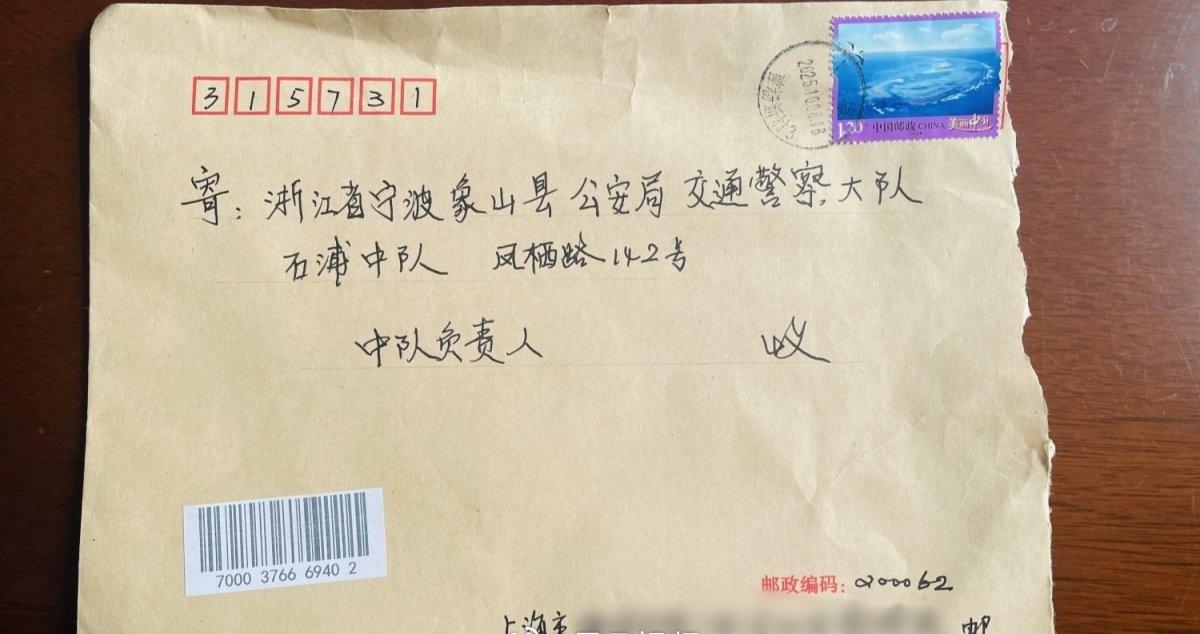 315731
2025.10.08.18
1.20 中国邮政 CHINA 美丽中国
寄：浙江省宁波象山县公安局交通警察大队
石浦中队 凤栖路142号
中队负责人 收
7000 3766 6940 2
邮政编码：200062
上海市
邮